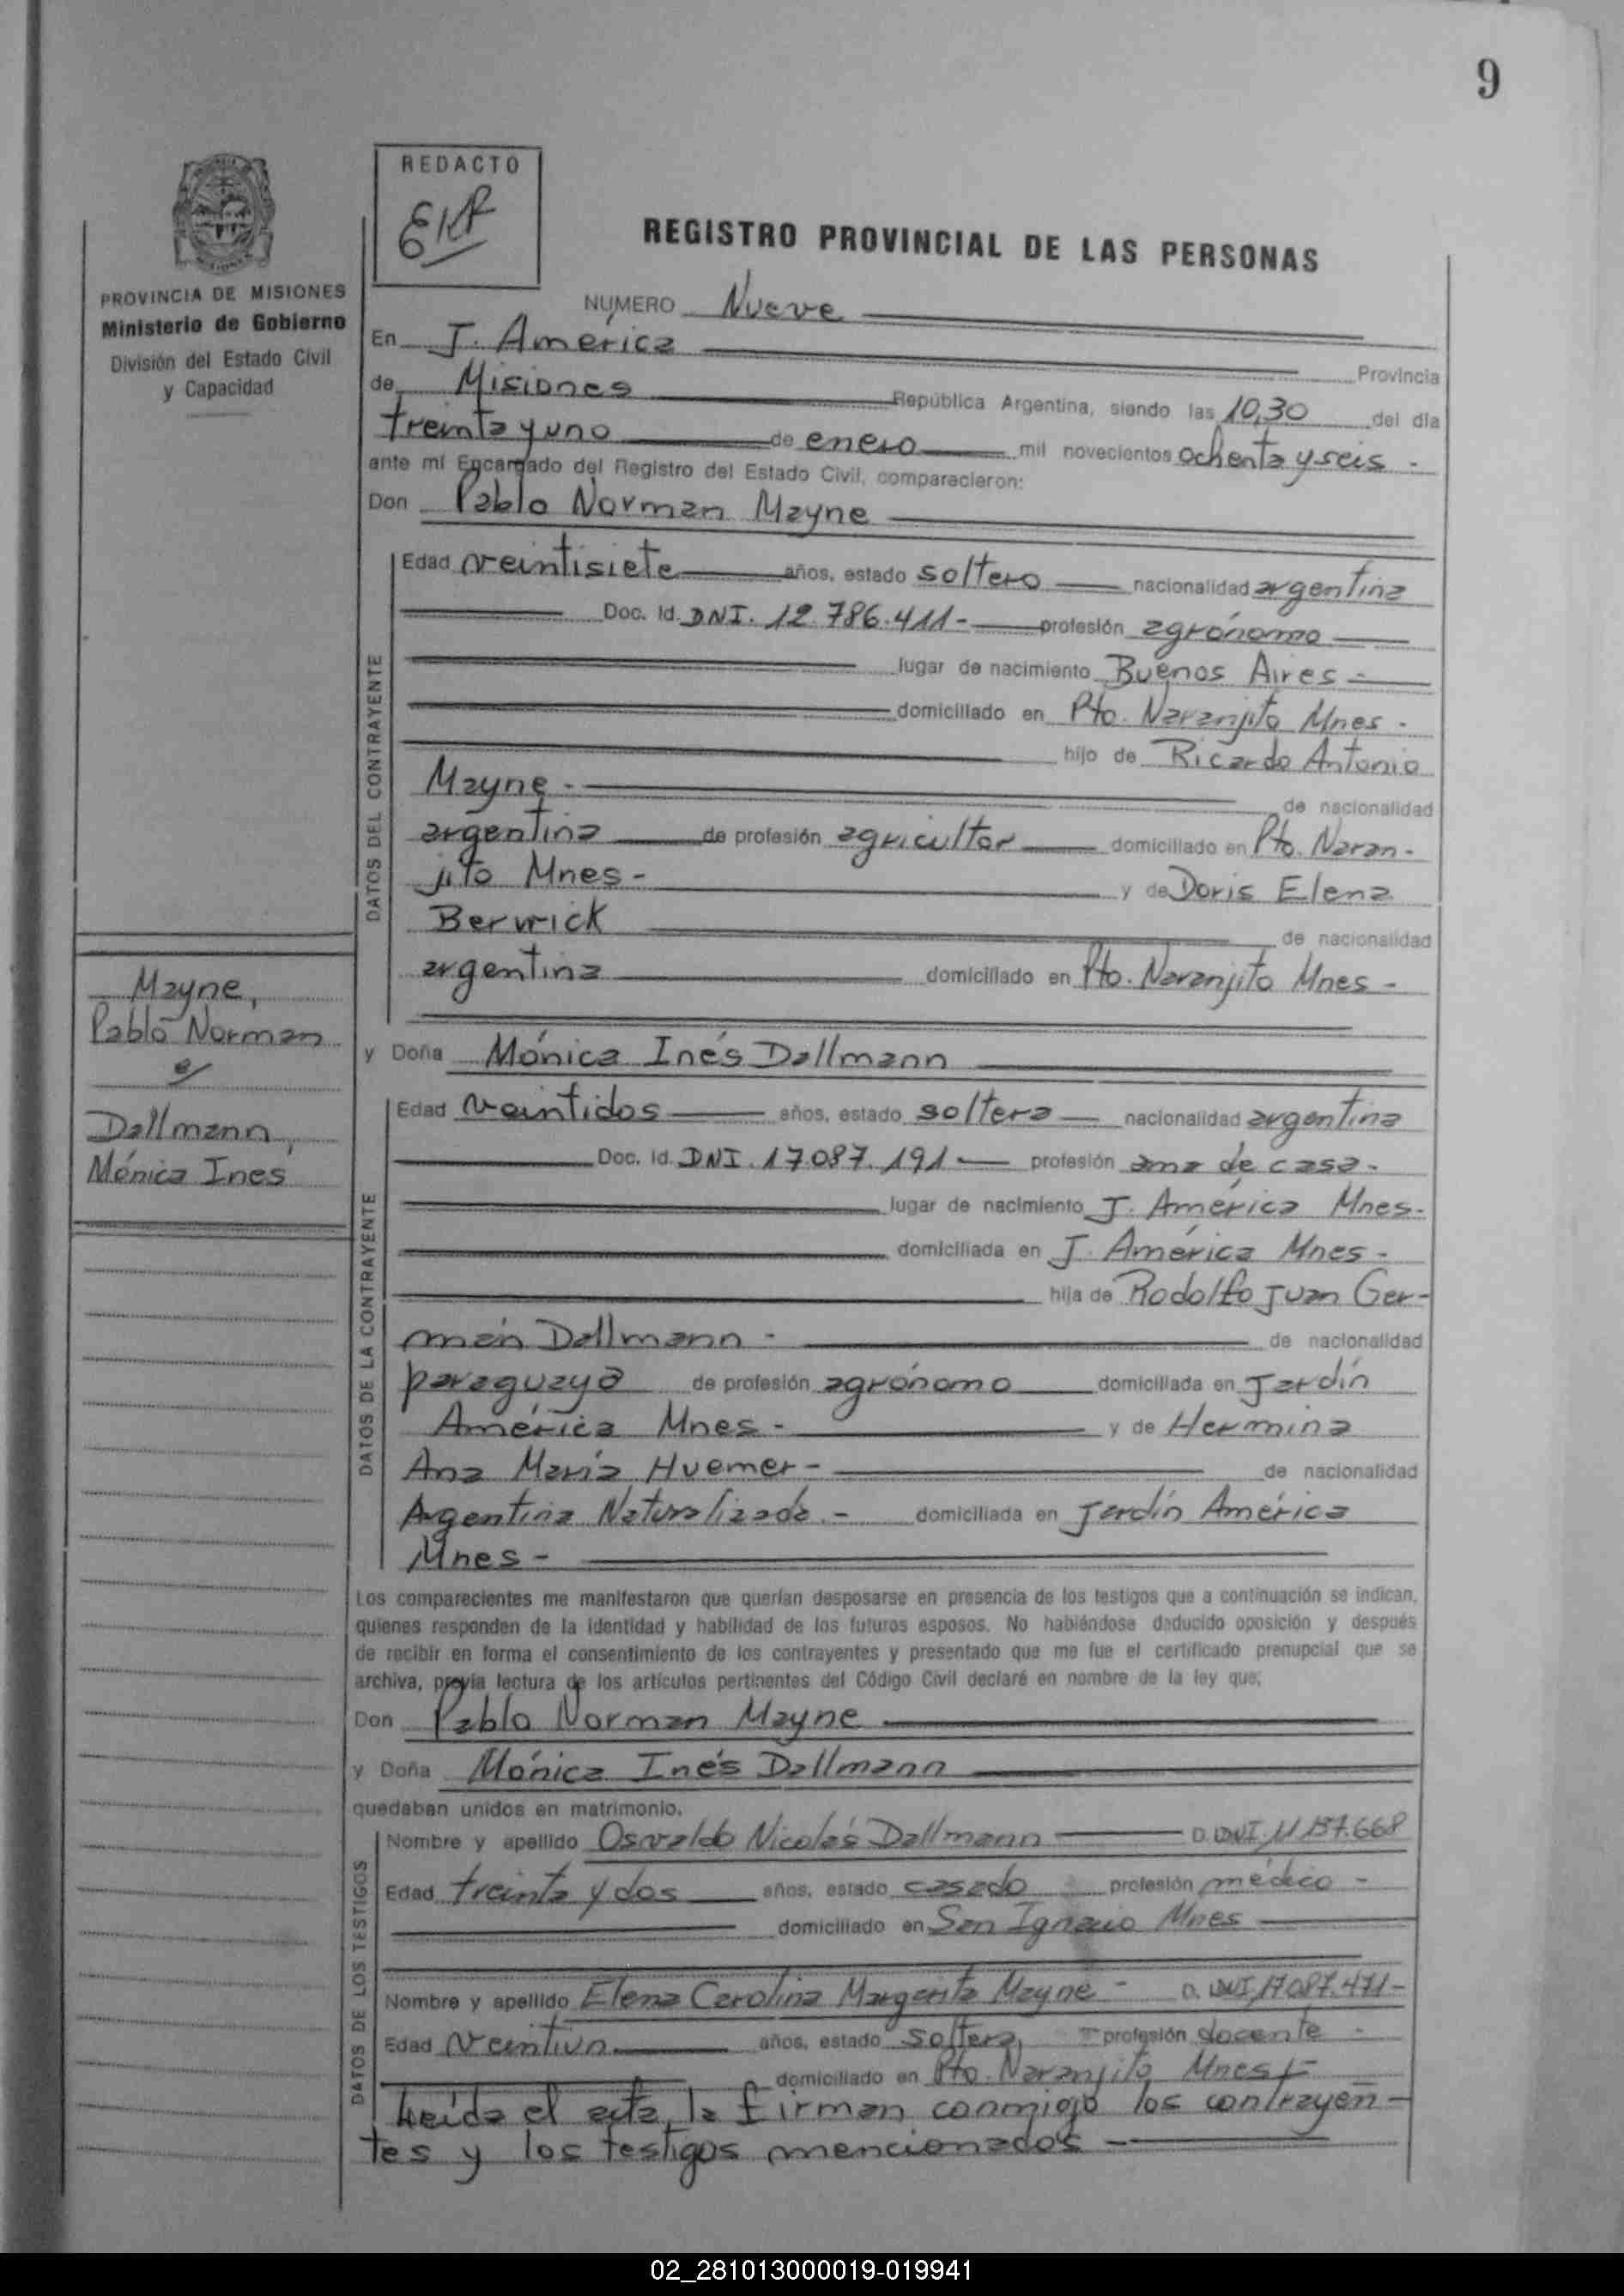 9
REDACTO
REGISTRO PROVINCIAL DE LAS PERSONAS
PROVINCIA DE MISIONES
Ministerio de Gobierno
División del Estado Civil
y Capacidad
NUMERO Nueve
En J. America
Provincia
de Misiones República Argentina, siendo las 10,30 del día
treinta y uno de enero mil novecientos ochenta y seis -
ante mí Encargado del Registro del Estado Civil, comparecieron:
Don Pablo Norman Mayne
DATOS DEL CONTRAYENTE
Edad veintisiete años, estado soltero nacionalidad argentina
Doc. Id. DNI. 12.786.411- profesión agrónomo
lugar de nacimiento Buenos Aires -
domiciliado en Pto. Naranjito Mnes -
hijo de Ricardo Antonio
Mayne - de nacionalidad
argentina de profesión agricultor domiciliado en Pto. Naran-
jito Mnes - y de Doris Elena
Berwick de nacionalidad
argentina domiciliado en Pto. Naranjito Mnes -
Mayne,
Pablo Norman
c/
Dallmann,
Mónica Ines
y Doña Mónica Inés Dallmann
DATOS DE LA CONTRAYENTE
Edad veintidos años, estado soltera nacionalidad argentina
Doc. Id. DNI. 17.087.191 - profesión ama de casa -
lugar de nacimiento J. América Mnes-
domiciliada en J. América Mnes -
hija de Rodolfo Juan Ger-
mán Dallmann - de nacionalidad
paraguaya de profesión agrónomo domiciliada en Jardín
América Mnes - y de Hermina
Ana María Huemer - de nacionalidad
Argentina Naturalizada - domiciliada en Jardín América
Mnes -
Los comparecientes me manifestaron que querían desposarse en presencia de los testigos que a continuación se indican,
quienes responden de la identidad y habilidad de los futuros esposos. No habiéndose deducido oposición y después
de recibir en forma el consentimiento de los contrayentes y presentado que me fue el certificado prenupcial que se
archiva, previa lectura de los artículos pertinentes del Código Civil declaré en nombre de la ley que;
Don Pablo Norman Mayne
y Doña Mónica Inés Dallmann
quedaban unidos en matrimonio.
DATOS DE LOS TESTIGOS
Nombre y apellido Osvaldo Nicolás Dallmann D. DNI 11.157.668
Edad treinta y dos años, estado casado profesión médico -
domiciliado en San Ignacio Mnes
Nombre y apellido Elena Carolina Margarita Mayne - D. DNI, 17.087.471-
Edad veintiun años, estado soltera, profesión docente -
domiciliado en Pto. Naranjito Mnes -
Leída el acta, la firman conmigo los contrayen-
tes y los testigos mencionados -
02_281013000019-019941